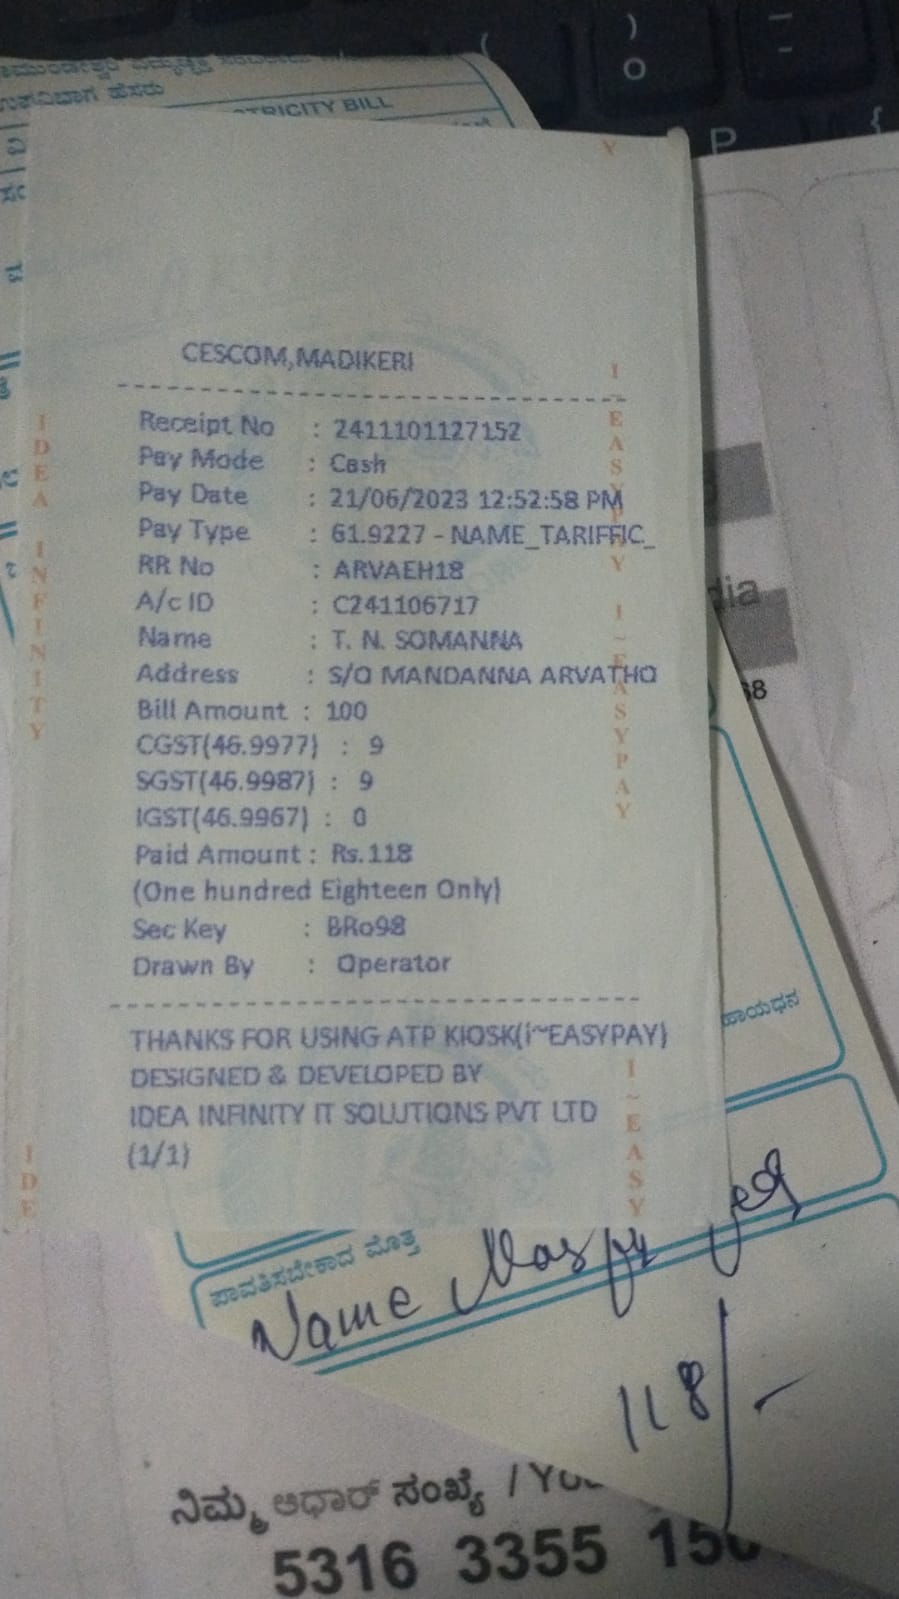 ಉಪವಿಭಾಗ ಹೆಸರು
TRICITY BILL
CESCOM,MADIKERI
Receipt No : 2411101127152
Pay Mode : Cash
Pay Date : 21/06/2023 12:52:58 PM
Pay Type : 61.9227 - NAME_TARIFFIC_
RR No : ARVAEH18
A/c ID : C241106717
Name : T. N. SOMANNA
Address : S/O MANDANNA ARVATHO
Bill Amount : 100
CGST(46.9977) : 9
SGST(46.9987) : 9
IGST(46.9967) : 0
Paid Amount : Rs.118
(One hundred Eighteen Only)
Sec Key : BRo98
Drawn By : Operator
THANKS FOR USING ATP KIOSK(i~EASYPAY)
DESIGNED & DEVELOPED BY
IDEA INFINITY IT SOLUTIONS PVT LTD
(1/1)
IDEA INFINITY
I~EASYPAY I~EASYPAY
IDE
I~EASY
ಪಾವತಿಸಬೇಕಾದ ಮೊತ್ತ
Name
118/-
ನಿಮ್ಮ ಆಧಾರ್ ಸಂಖ್ಯೆ /
5316 3355